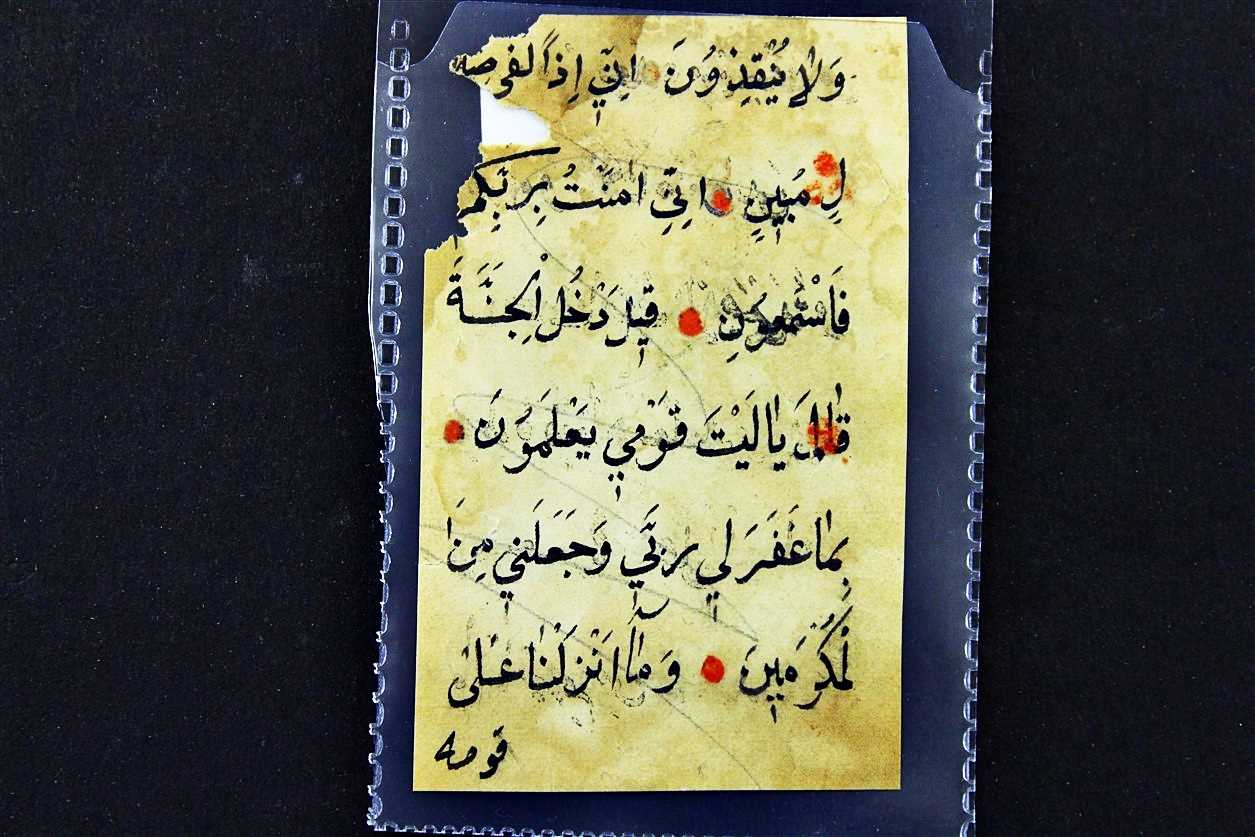 وَلاٰ يُنْقِذُونَ اِنّي اِذاً لَفي
لِ مُبينٍ اِنّي امَنْتُ بِرَبِّكم
فَاسْمَعُونِ قيلَ دْخُلِ الْجَنَّةَ
قٰالَ يٰا لَيْتَ قَوْمي يَعْلَمُونَ
بِمٰا غَفَرَ لي رَبّي وَجَعَلَني مِنَ ا
لْمُكْرَمينَ وَمٰا اَنْزَلْنٰا عَلىٰ
قومه